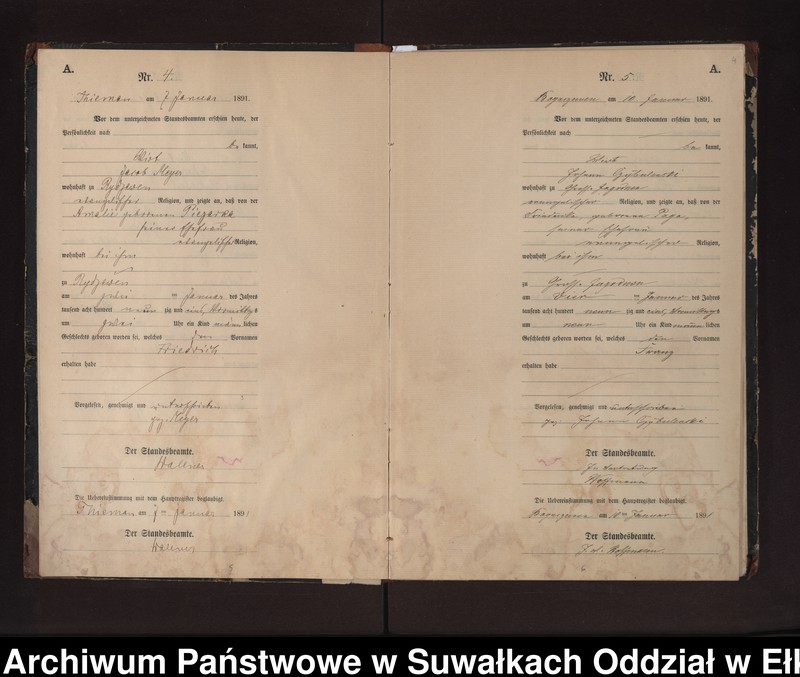 A.
Nr. 4.
am 7 Januar 1891.
Vor dem unterzeichneten Standesbeamten erschien heute, der
Persönlichkeit nach
be kannt,
Wirt
Jacob Meyer
wohnhaft zu Rydzewen
evangelischer Religion, und zeigte an, daß von der
Amalie geborenen Piezarka
seiner Ehefrau
evangelischer Religion,
wohnhaft bei ihm
zu Rydzewen
am zwei ten Januar des Jahres
tausend acht hundert neun zig und ein, Vormittags
am zwei Uhr ein Kind männlichen
Geschlechts geboren worden sei, welches den Vornamen
Friedrich
erhalten habe
Vorgelesen, genehmigt und unterschrieben
gez. Meyer
Der Standesbeamte.
Die Uebereinstimmung mit dem Hauptregister beglaubigt.
am 7 ten Januar 1891
Der Standesbeamte.
5
Nr. 5.
A.
am 10. Januar 1891.
Vor dem unterzeichneten Standesbeamten erschien heute, der
Persönlichkeit nach
be kannt,
Wirt
Johann
wohnhaft zu Gross Jagodnen
evangelischer Religion, und zeigte an, daß von der
Friederike, geborenen
seiner Ehefrau
evangelischer Religion,
wohnhaft bei ihm
zu Gross Jagodnen
am vier ten Januar des Jahres
tausend acht hundert neun zig und ein,
am neun Uhr ein Kind männlichen
Geschlechts geboren worden sei, welches den Vornamen
Franz
erhalten habe
Vorgelesen, genehmigt und unterschrieben
gez. Johann
Der Standesbeamte.
In Vertretung
Die Uebereinstimmung mit dem Hauptregister beglaubigt.
am Januar 1891
Der Standesbeamte.
6
Archiwum Państwowe w Suwałkach Oddział w Ełk